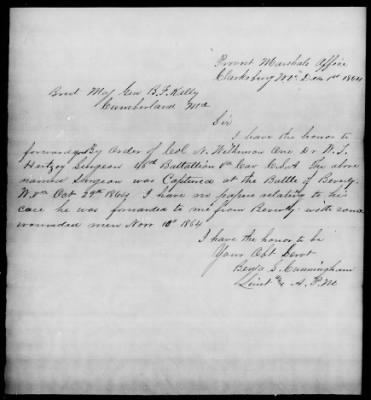 Provost Marshals Office
Clarksburg W. Va Dec 1st 1864
Brvt Maj Gen B. F. Kelly
Cumberland Md
Sir
I have the honor to
forward by Order of Col N. Wilkinson One Dr W. S.
Hartzog Surgeon 46th Battallion Va Cav C.S.A The above
named Surgeon was Captured at the Battle of Beverly
W. Va Oct 29th 1864 I have no papers relating to his
case he was forwarded to me from Beverly with some
wounded men Nov 10th 1864
I have the honor to be
Your Obt Servt
Benj S. Cunningham
Lieut & A. P. M.